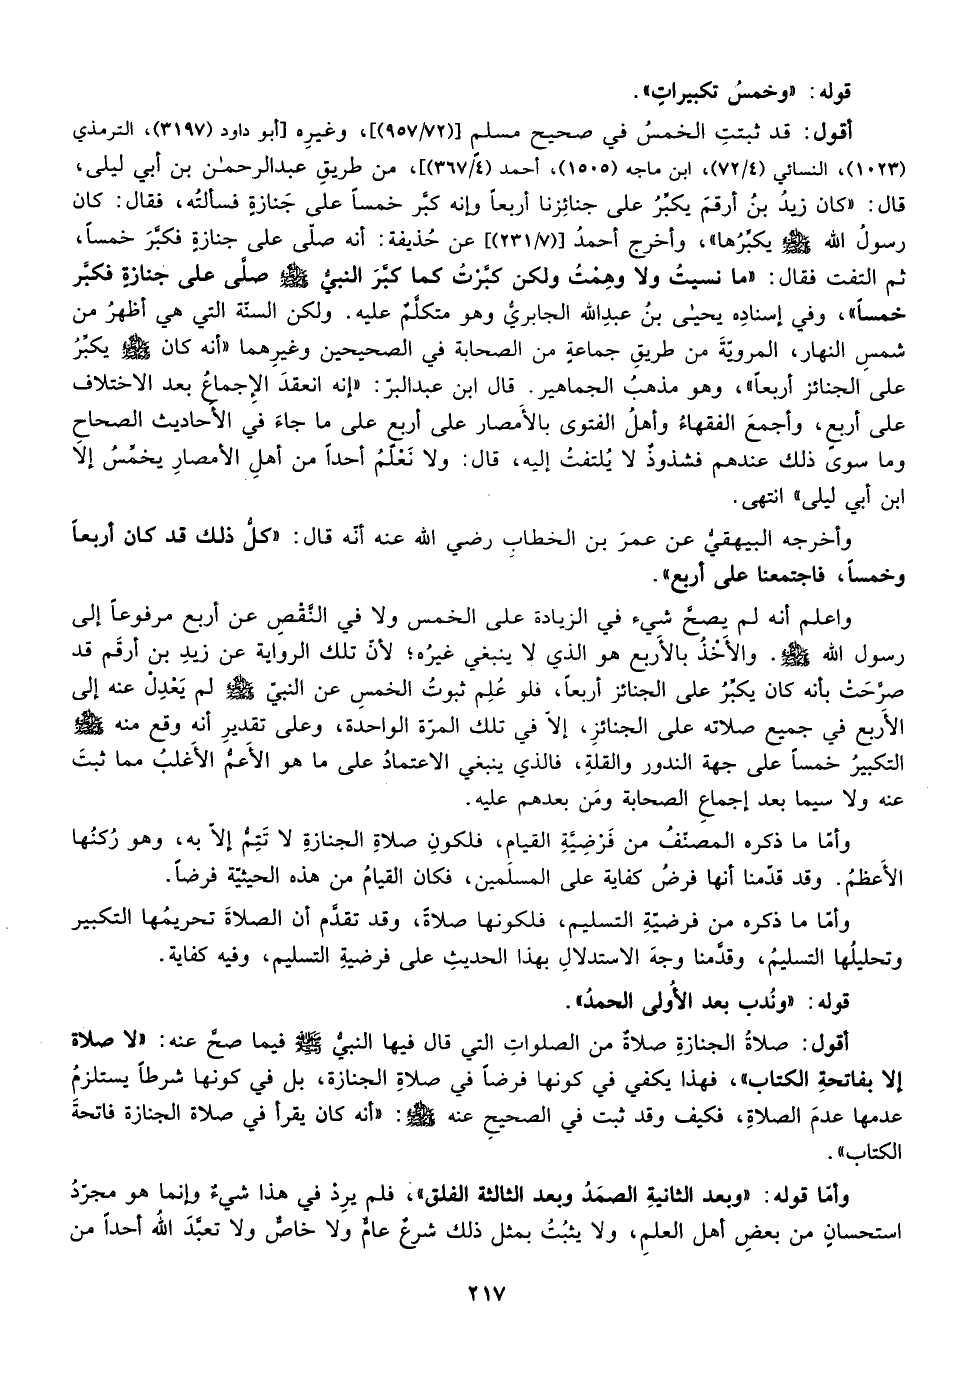 قوله: «وخمسُ تكبيراتٍ».
أقول: قد ثبتتِ الخمسُ في صحيح مسلم [(٩٥٧/٧٢)]، وغيرِه [أبو داود (٣١٩٧)، الترمذي
(١٠٢٣)، النسائي (٧٢/٤)، ابن ماجه (١٥٠٥)، أحمد (٣٦٧/٤)]، من طريقِ عبدالرحمٰن بن أبي ليلى،
قال: «كان زيدُ بنُ أرقمَ يكبِّرُ على جنائِزنا أربعاً وإنه كبَّر خمساً على جَنازةٍ فسألتُه، فقال: كان
رسولُ الله ﷺ يكبِّرُها»، وأخرج أحمدُ [(٢٣١/٧)] عن حُذيفة: أنه صلّى على جنازةٍ فكبَّرَ خمساً،
ثم التفت فقال: «ما نسيتُ ولا وهِمْتُ ولكن كبَّرْتُ كما كبَّرَ النبيُّ ﷺ صلَّى على جنازةٍ فكبَّر
خمساً»، وفي إسنادِه يحيىٰ بنُ عبدِالله الجابريُّ وهو متكلَّمٌ عليه. ولكن السنّة التي هي أظهرُ من
شمسِ النهار، المرويّةَ من طريقِ جماعةٍ من الصحابة في الصحيحين وغيرهما «أنه كان ﷺ يكبِّرُ
على الجنائز أربعاً»، وهو مذهبُ الجماهير. قال ابن عبدالبرّ: «إنه انعقدَ الإجماعُ بعد الاختلاف
على أربعٍ، وأجمعَ الفقهاءُ وأهلُ الفتوى بالأمصار على أربعٍ على ما جاءَ في الأحاديث الصحاحِ
وما سوى ذلك عندهم فشذوذٌ لا يُلتفتُ إليه، قال: ولا نَعْلَمُ أحداً من أهلِ الأمصارِ يخمِّسُ إلاّ
ابن أبي ليلى» انتهى.
وأخرجه البيهقيُّ عن عمرَ بن الخطابِ رضي الله عنه أنّه قال: «كلُّ ذلك قد كان أربعاً
وخمساً، فاجتمعنا على أربع».
واعلم أنه لم يصحَّ شيء في الزيادة على الخمس ولا في النَّقْصِ عن أربع مرفوعاً إلى
رسول الله ﷺ. والأَخْذُ بالأَربعِ هو الذي لا ينبغي غيرُه؛ لأنّ تلك الرواية عن زيدِ بن أرقَم قد
صرَّحَتْ بأنه كان يكبِّرُ على الجنائز أربعاً، فلو عُلِم ثبوتُ الخمسِ عن النبيّ ﷺ لم يَعْدِلْ عنه إلى
الأربع في جميع صلاته على الجنائزِ، إلاّ في تلك المرّة الواحدة، وعلى تقديرِ أنه وقع منه ﷺ
التكبيرُ خمساً على جهة الندور والقلةِ، فالذي ينبغي الاعتمادُ على ما هو الأعمُّ الأغلبُ مما ثبتَ
عنه ولا سيما بعد إجماعِ الصحابة ومَن بعدهم عليه.
وأمّا ما ذكره المصنّفُ من فَرْضِيَّةِ القيامِ، فلكونِ صلاةِ الجنازةِ لا تَتِمُّ إلاّ به، وهو رُكنُها
الأَعظمُ. وقد قدّمنا أنها فرضُ كفاية على المسلَمين، فكان القيامُ من هذه الحيثيّة فرضاً.
وأمّا ما ذكره من فرضيّةِ التسليم، فلكونها صلاةً، وقد تقدَّم أن الصلاةَ تحريمُها التكبير
وتحليلُها التسليمُ، وقدَّمنا وجهَ الاستدلالِ بهذا الحديثِ على فرضيةِ التسليم، وفيه كفاية.
قوله: «ونُدب بعد الأُولى الحمدُ».
أقول: صلاةُ الجنازةِ صلاةٌ من الصلواتِ التي قال فيها النبيُّ ﷺ فيما صحَّ عنه: «لا صلاة
إلا بفاتحةِ الكتاب»، فهذا يكفي في كونها فرضاً في صلاةِ الجنازة، بل في كونها شرطاً يستلزمُ
عدمها عدمَ الصلاةِ، فكيف وقد ثبت في الصحيحِ عنه ﷺ: «أنه كان يقرأ في صلاة الجنازة فاتحةَ
الكتاب».
وأمّا قوله: «وبعد الثانيةِ الصمَدُ وبعد الثالثة الفلق»، فلم يرِدْ في هذا شيءٌ وإنما هو مجرّدُ
استحسانٍ من بعضِ أهل العلمِ، ولا يثبُتُ بمثل ذلك شرعٌ عامٌّ ولا خاصٌّ ولا تعبَّدَ اللهُ أحداً من
٢١٧